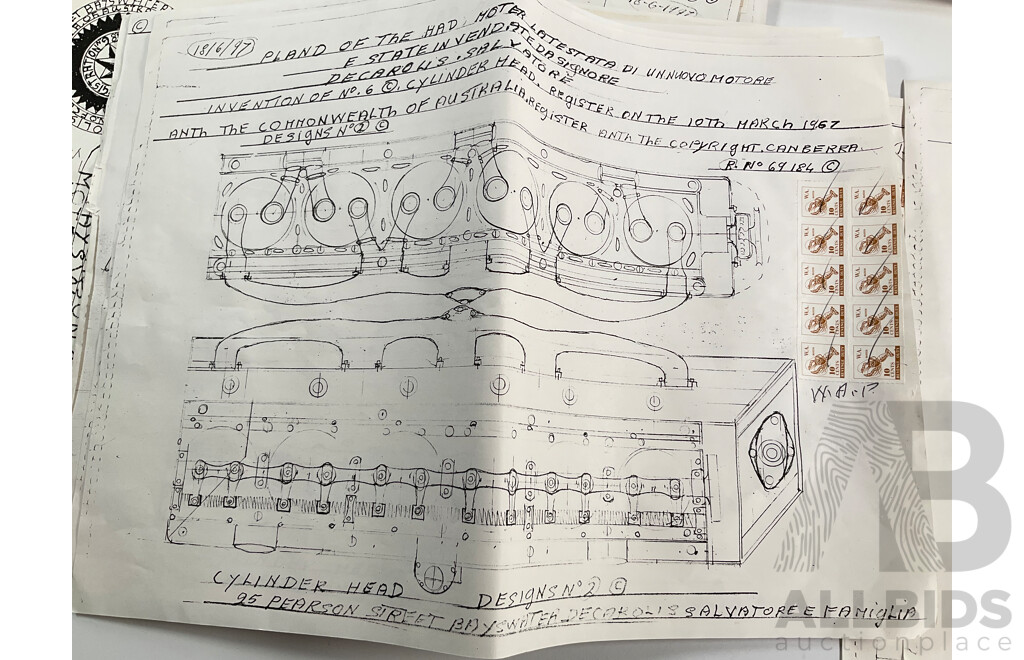 18-6-1997
18/6/97
PLAND OF THE HAD. MOTER LATESTATA DI UNNUOVO MOTORE
E STATE IN VENDIATE DA SIGNORE
DECAROLIS. SALVATORE
INVENTION OF No. 6 ©. CYLINDER HEAD. REGISTER ON THE 10TH MARCH 1967
ANTH THE COMMONWEALTH OF AUSTRALIA. REGISTER ANTH THE COPYRIGHT. CANBERRA
DESIGNS No 2 ©
R. No 69184 ©
W.A.
10
CENTS
W.A.P.
CYLINDER HEAD DESIGNS No 2 ©
95 PEARSON STREET BAYSWATER DECAROLIS SALVATORE E FAMIGLIA
AB
ALLBIDS
auctionplace